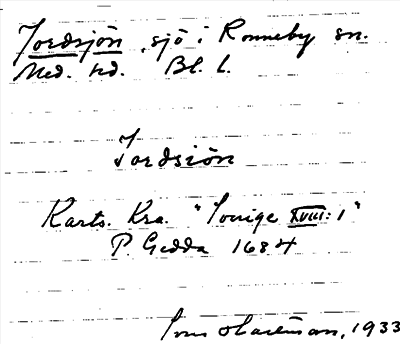 Jordsjön, sjö i Ronneby sn.
Med. hd. Bl. l.
Jordsiön
Kartv. Kra. "Sverige XVIII: 1"
P. Gedda 1684
1933